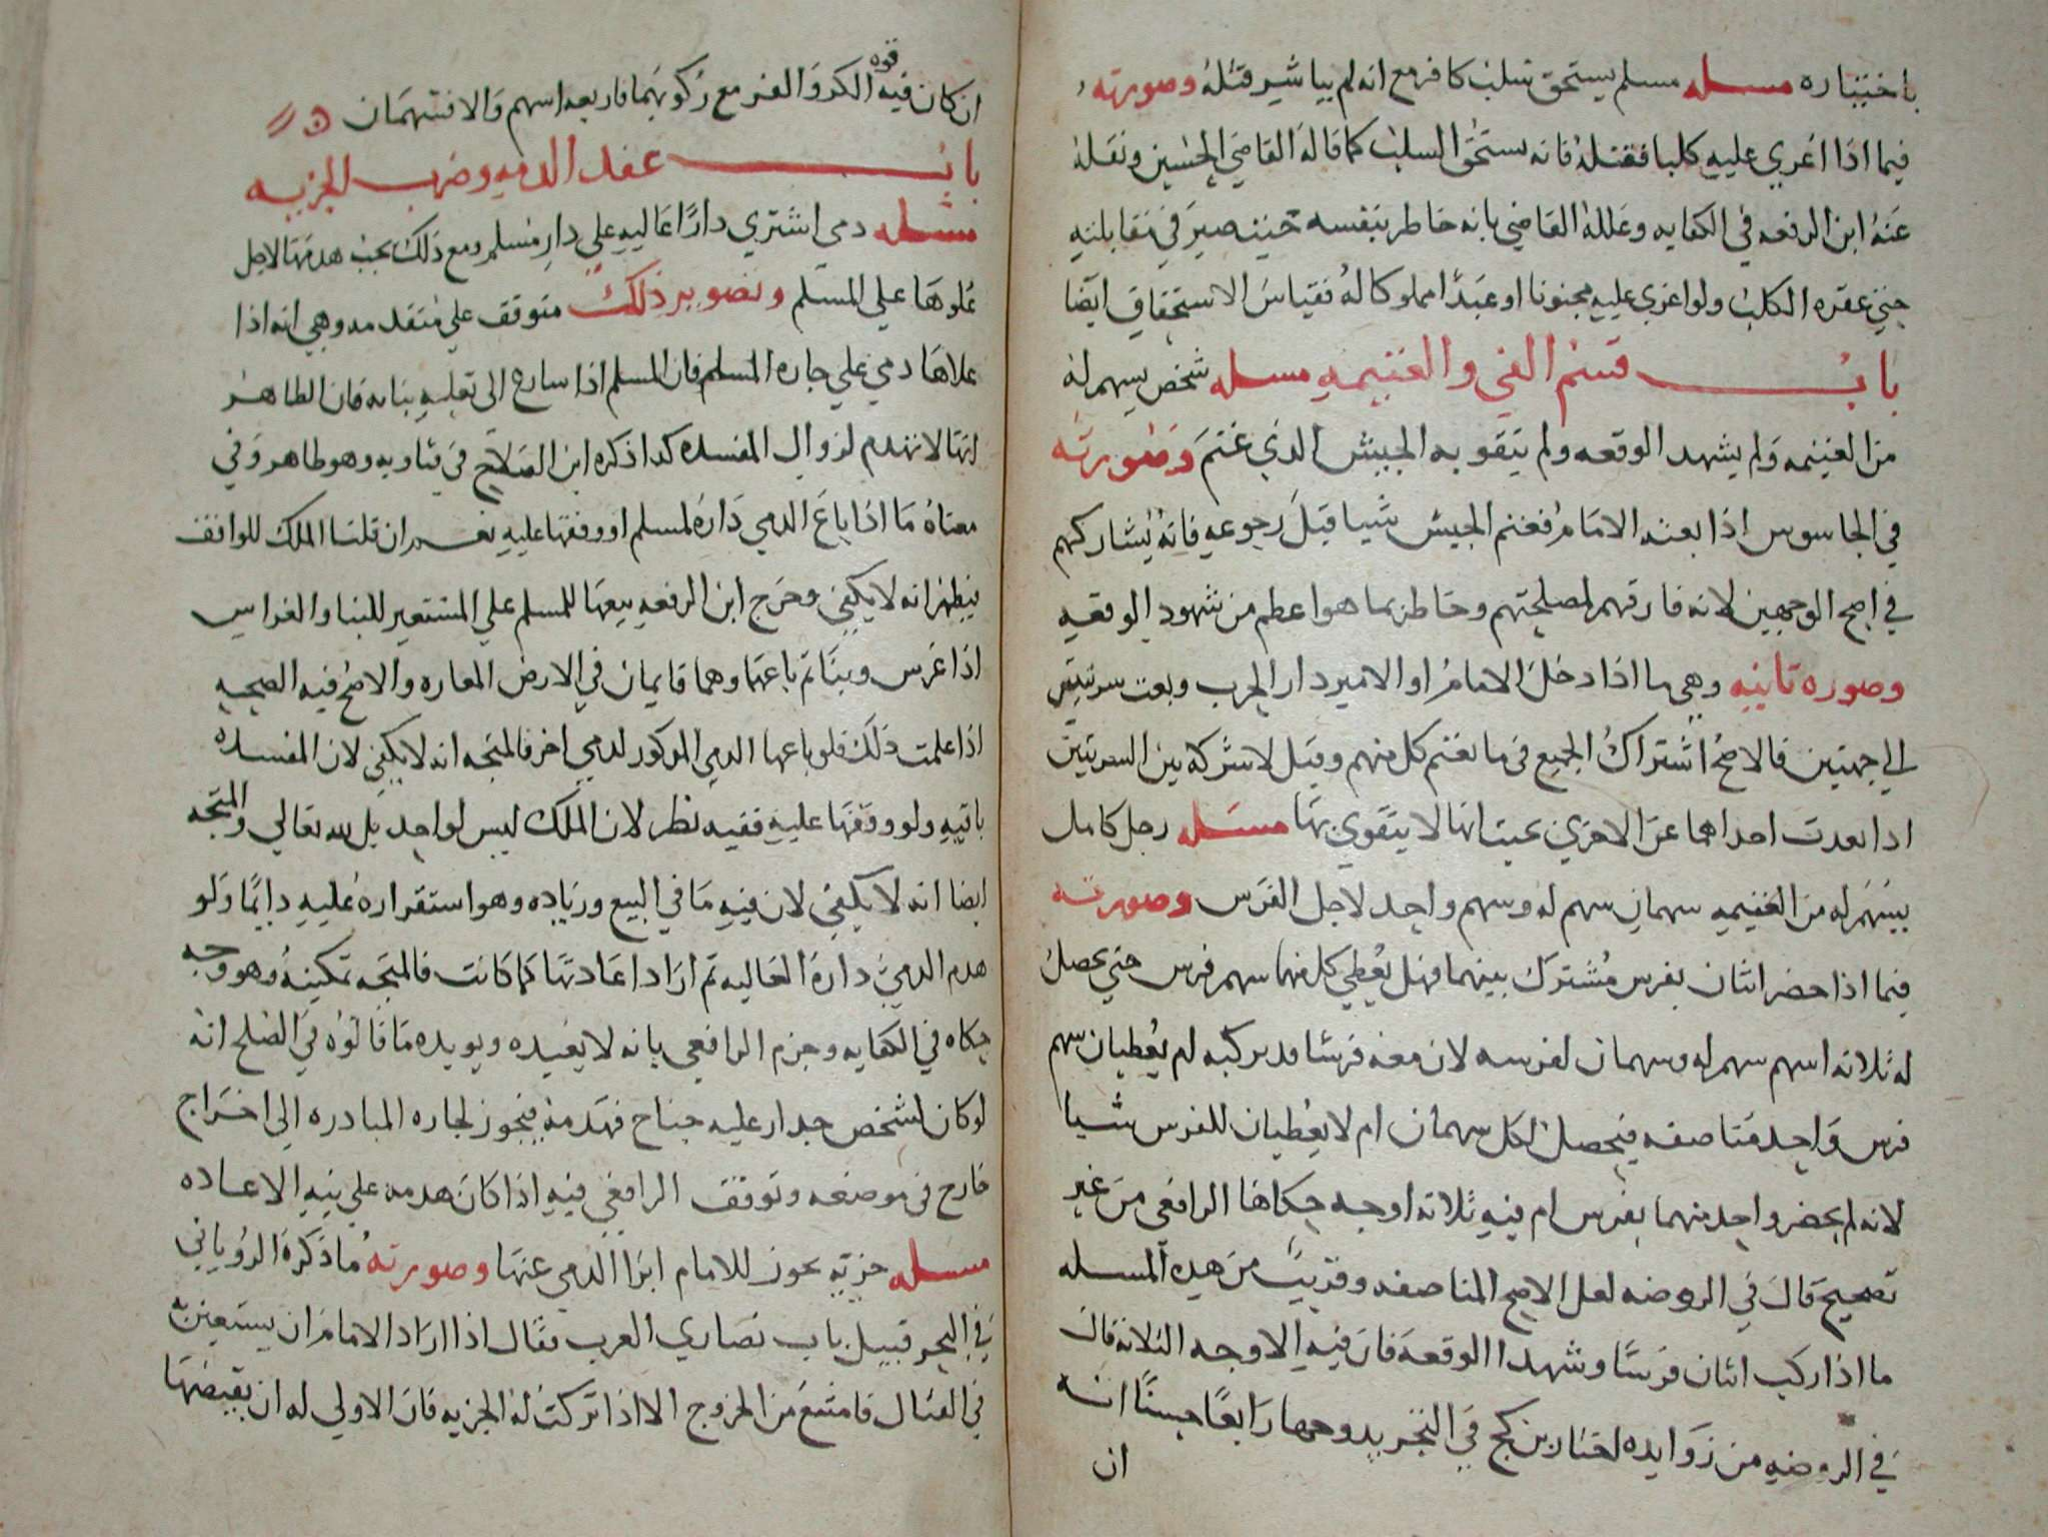 باختياره مسله مسلم يستحق سلب كافر مع انه لم يباشر قتله وصورته
فيما اذا اغري عليه كلبا فقتله فانه يستحق السلب كما قاله القاضي الحسين ونقله
عنه ابن الرفعه في الكفايه وعلله القاضي بانه خاطر بنفسه حيث صبر في مقابلته
حتي عقره الكلب ولو اغري عليه مجنونا او عبدا مملوكا له فقياس الاستحقاق ايضا
باب قسم الفي والغنيمه مسله شخص يسهم له
من الغنيمه ولم يشهد الوقعه ولم يتقو به الجيش الذي غنم وصورته
في الجاسوس اذا بعثه الامام فغنم الجيش شيا قبل رجوعه فانه يشاركهم
في اصح الوجهين لانه فارقهم لمصلحتهم وخاطر بما هو اعظم من شهود الوقعه
وصوره ثانيه وهي ما اذا دخل الامام او الامير دار الحرب وبعث سريتين
الي جهتين فالاصح اشتراك الجميع في ما يغنم كل منهم وقيل لا شركه بين السريتين
اذا بعدت احداهما عن الاخري بحيث انها لا يتقوي بها مسله رجل كامل
يسهم له من الغنيمه سهمان سهم له وسهم واحد لاجل الفرس وصورته
فيما اذا حضر اثنان بفرس مشترك بينهما فهل يعطي كل منهما سهم فرس حتي يحصل
له ثلاثه اسهم سهم له وسهمان لفرسه لان معه فرسا قد يركبه ام يعطيان سهم
فرس واحد مناصفه فيحصل لكل سهمان ام لا يعطيان للفرس شيا
لانه لم يحضر واحد منهما بفرس ام فيه ثلاثه اوجه حكاها الرافعي من غير
تصحيح قال في الروضه لعل الاصح المناصفه وقريب من هذه المسله
ما اذا ركب اثنان فرسا وشهدا الوقعه فان فيه الاوجه الثلاثه قال
في الروضه من زوايده اختار بن كج في التجريد وجها رابعا حسنا انه
ان
ان كان فيه قوه الكر والفر مع ركوبهما فاربعه اسهم والا فسهمان
باب عقد الذمه وضرب الجزيه
مسله ذمي اشتري دارا عاليه علي دار مسلم ومع ذلك يجب هدمها لاجل
علوها علي المسلم وتصوير ذلك متوقف علي مقدمه وهي انه اذا
علاها ذمي علي جاره المسلم فان المسلم اذا سارع الى تعليه بنايه فان الظاهر
انها لا تهدم لزوال المفسده كذا ذكره ابن الصلاح في فتاويه وهو ظاهر وفي
معناه ما اذا باع الذمي داره لمسلم او وقفها عليه نعم ان قلنا الملك للواقف
فيظهر انه لا يكفي وخرج ابن الرفعه بيعها للمسلم علي المستعير للبنا والغراس
اذا غرس وبنا ثم باعهما وهما قايمان في الارض المعاره والاصح فيه الصحه
اذا علمت ذلك فلو باعها الذمي المذكور لذمي اخر فالمتجه انه لا يكفي لان المفسده
باقيه ولو وقفها عليه ففيه نظر لان الملك ليس لواحد بل لله تعالي والمتجه
ايضا انه لا يكفي لان فيه ما في البيع وزياده وهو استقراره عليه دايما ولو
هدم الذمي داره العاليه ثم اراد اعادتها كما كانت فالمتجه تمكينه وهو وجه
حكاه في الكفايه وجزم الرافعي بانه لا يعيده ويويده ما قالوه في الصلح انه
لو كان لشخص جدار عليه جناح فهدمه فيجوز لجاره المبادره الي اخراج
خارج في موضعه وتوقف الرافعي فيه اذا كان هدمه علي نيه الاعاده
مسله جزيه يجوز للامام ابرا الذمي عنها وصورته ما ذكره الروياني
في البحر قبيل باب نصاري العرب فقال اذا اراد الامام ان يستعين به
في القتال فامتنع من الخروج الا اذا تركت له الجزيه فان الاولي له ان يقبضها